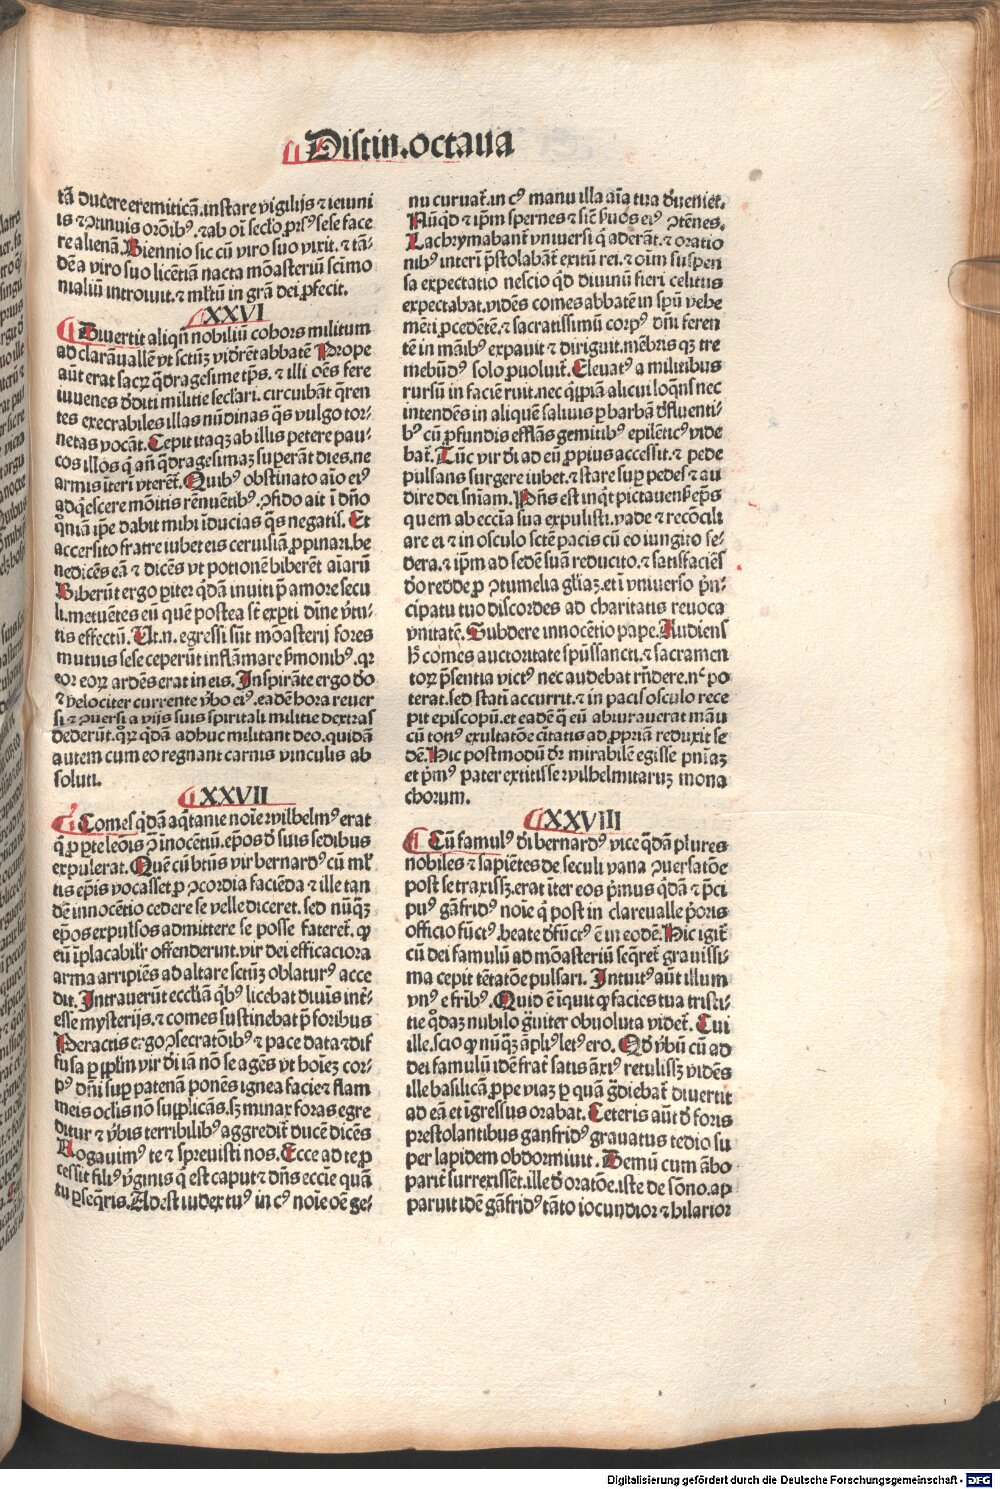 Distin.octaua
tã ducere eremiticã.instare vigilijs ⁊ ieiuni
is ⁊ ꝯtinuis orõibꝰ.⁊ ab oĩ sedo prsꝰ sese face
re alienã. Biennio sic cũ viro suo vixit.⁊ tã-
dẽ a viro suo licẽtiã nacta mõasteriũ sctimo
nialiũ introiuit.⁊ ml̃tũ in grã dei ꝓfecit.
XXVI
Diuertit aliqñ nobiliũ cohors militum
ad clarãuallẽ vt sctũꝫ vidẽret abbatẽ Prope
aũt erat sacrꝫ q̃dragesime tp̃s.⁊ illi oẽs fere
iuuenes dediti militie secl̃ari.circuibãt q̃ren
tes execrabiles illas nũdinas q̃s vulgo tor-
netas vocãt. Cepit itaqꝫ ab illis petere pau-
cos illos q̃ añ q̃dragesimaꝫ supererãt dies.ne
armis ĩteri vterẽt. Quibꝰ obstinato aĩo eiꝰ
adq̃escere mõitis rẽnuẽtibꝰ.ꝯfido ait ĩ dño
q̃niã ip̃e dabit mihi ĩducias q̃s negatis. Et
accersito fratre iubet eis ceruisiã ꝓpinari.be
nedicẽs eã ⁊ dicẽs vt potionẽ biberẽt aĩarũ
Biberũt ergo ꝑiter q̃dã inuiti p̃ amore secu
li.metuẽtes eũ quẽ postea st̃ expti diuĩe v̓tu-
tis effectũ. Ut.n.egressi sũt mõasterij fores
mutuis sese ceperũt inflãmare ſmonibꝰ.qꝛ
cor eoꝝ ardẽs erat in eis. Inspirãte ergo deo
⁊ velociter currente v̓bo eiꝰ.eadẽ hora reuer
si ⁊ ꝯuersi a vijs suis spiritali militie dextras
dederũt.quoꝝ q̃dã adhuc militant deo.quidã
autem cum eo regnant carnis vinculis ab
soluti.
XXVII
Comes q̃dã aq̃tanie noĩe wilhelmꝰ erat
q̃ ꝓ pte leõis ꝯ̃ inocẽtiũ.ep̃os d̓ suis sedibus
expulerat. Quẽ cũ bt̃ns vir bernardꝰ cũ ml̓
tis ep̃is vocasset.ꝓ ꝯcordia faciẽda ⁊ ille tan
dẽ innocẽtio cedere se velle diceret.sed nũqꝫ
ep̃os expulsos admittere se posse fateret̃.qꝫ
eũ ĩplacabilr̃ offenderunt.vir dei efficaciora
arma arripiẽs ad altare sctũꝫ oblaturꝰ acce
dit. Intrauerũt eccl̃iã q̃bꝰ licebat diuĩs int̃-
esse mysterijs.⁊ comes sustinebat p̃ foribus
Peractis ergo ꝯsecratõibꝰ ⁊ pace data ⁊ dif
fusa ꝑ pplm̃ vir di̓ iã nõ se agẽs vt hoĩeꝫ cor-
pꝰ dñi sup̃ patenã ponẽs ignea facie ⁊ flam
meis oclis nõ suꝓlicãs.sꝫ minax foras egre
ditur ⁊ v̓bis terribilibꝰ aggredit̃ ducẽ dicẽs
Rogauimꝰ te ⁊ spreuisti nos. Ecce ad te ꝓ
cessit filiꝰ v̓ginis q̃ est caput ⁊ dñs eccl̃ie quã
tu ꝑseq̃ris. Adest iudex tuꝰ in cꝰ noĩe oẽ ge-
nu curuat̃.in cꝰ manu illa aĩa tua d̓ueniet̃.
Nũqd̓ ⁊ ip̃m spernes ⁊ sic̃ s̓uos eiꝰ ꝯtẽnes.
Lachrymabant̃ vniuersi q̃ aderãt.⁊ oratio
nibꝰ interi p̃stolabãt exitũ rei.⁊ oĩm suspen
sa expectatio nescio qd̓ diuinũ fieri celitus
expectabat.vidẽs comes abbatẽ in sp̃u vehe
mẽti ꝓcedẽtẽ.⁊ sacratissimũ corpꝰ dñi feren
tẽ in mãibꝰ expauit ⁊ diriguit.mẽbris qꝫ tre
mebũdꝰ solo ꝓuoluit̃. Eleuatꝰ a militibus
rursũ in faciẽ ruit.nec q̃ꝑiã alicui loq̃ns nec
intendẽs in aliquẽ saliuis ꝑ barbã d̓fluenti-
bꝰ cũ ꝓfundis efflãs gemitibꝰ epilẽticꝰ vide
bat̃. Tũc vir di̓ ad eũ ꝓpius accessit.⁊ pede
pulsans surgere iubet.⁊ stare sup̃ pedes ⁊ au
dire dei sn̄iam. P̃ñs est inq̃t pictauenẽ ep̃s
quem ab eccl̃ia sua expulisti.vade ⁊ recõcili
are ei ⁊ in osculo sctẽ pacis cũ eo iungito fe-
dera.⁊ ip̃m ad sedẽ suã reducito.⁊ satisfaciẽs
d̓o redde ꝓ ꝯtumelia gl̃iaꝫ.et ĩ vniuerso p̃n-
cipatu tuo discordes ad charitatis reuoca
vnitatẽ. Subdere innocẽtio pape. Audiens
h̓ comes auctoritate sp̃ussancti.⁊ sacramen
toꝝ p̃sentia victꝰ nec audebat rñdere.nᶜ po
terat.sed statĩ accurrit.⁊ in pacis osculo rece
pit episcopũ.et eadẽ q̃ eũ abiurauerat mãu
cũ totiꝰ exultatõe ciuitatis ad ꝓpriã reduxit se
dẽ. Hic postmodũ d̓r mirabilẽ egisse pn̄iaꝫ
et p̃mꝰ pater extitisse wilhelmitaruꝫ mona
chorum.
XXVIII
Cũ famulꝰ di̓ bernardꝰ vice q̃dã plures
nobiles ⁊ sapiẽtes de seculi vana ꝯuersatõe
post se traxissꝫ.erat ĩter eos p̃mus q̃dã ⁊ p̃ci
puꝰ gãfridꝰ noĩe q̃ post in clareualle p̓oris
officio fũctꝰ.beate d̓fũctꝰ ẽ in eodẽ. Hic igit̃
cũ dei famulũ ad mõasteriũ seq̃ret̃ grauissi-
ma cepit tẽtatõe pulsari. Intuitꝰ aũt illum
vnꝰ e frĩbꝰ. Quid ẽ iquit qꝫ facies tua tristi-
tie q̃daꝫ nubilo g̃uiter obuoluta videt̃. Cui
ille.scio qꝫ nũqꝫ ãpliꝰ letꝰ ero. Qd̓ v̓bũ cũ ad
dei famulũ idẽ frat̃ satis ãxiꝰ retulissꝫ vidẽs
ille basilicã ꝓpe viaꝫ ꝑ quã g̃diebat̃ diuertit
ad eã et ĩgressus orabat. Ceteris aũt d̓ foris
prestolantibus ganfridꝰ grauatus tedio su
per lapidem obdormiuit. Demũ cum ãbo
parit̃ surrexissẽt.ille d̓ oratõe.iste de sõno.ap
paruit idẽ gãfridꝰ tãto iocundior ⁊ hilarior
Digitalisierung gefördert durch die Deutsche Forschungsgemeinschaft - DFG